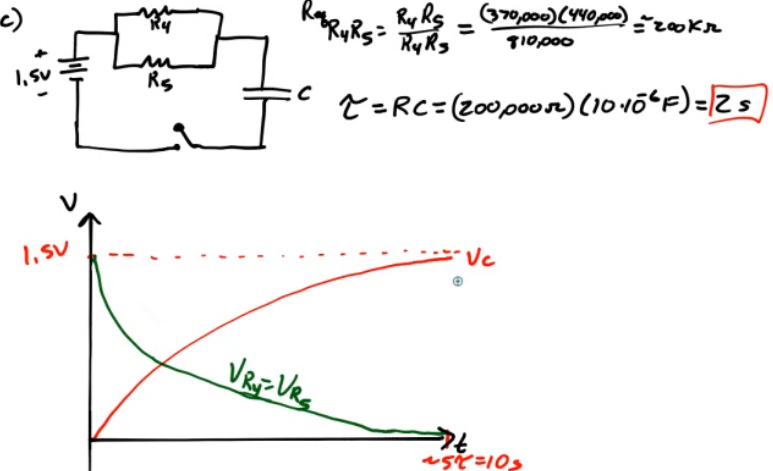 c)
R₄
R₅
1.5V
+
-
C
R₄R₅ = R₄R₅ / R₄R₅ = (370,000)(440,000) / 810,000 ≅ 200KΩ
τ = RC = (200,000Ω)(10·10⁻⁶F) = 2 s
V
1.5V
Vc
V_R₄ = V_R₅
t
~5τ=10s